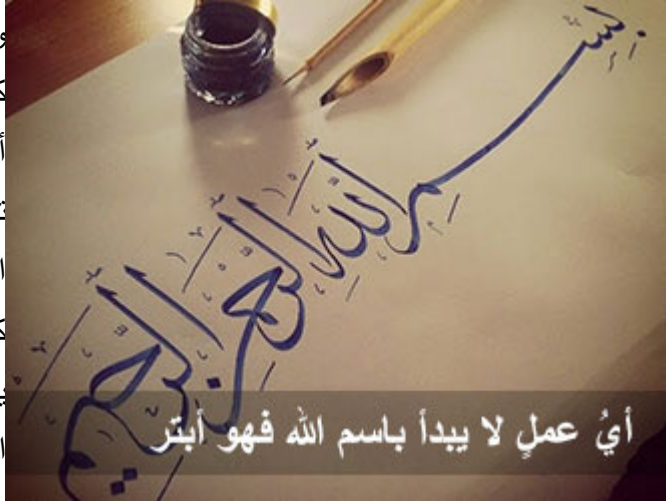 بِسْمِ اللهِ الرَّحْمنِ الرَّحِيمِ
أيُ عملٍ لا يبدأ باسم الله فهو أبتر